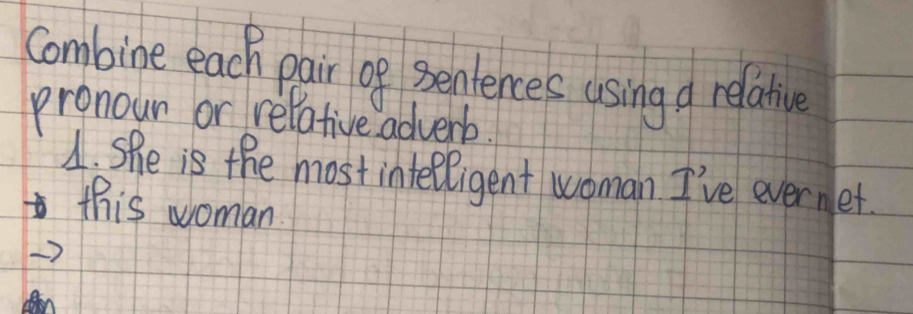 Combine each pair of sentences using a relative
pronoun or relative adverb.
1. She is the most intelligent woman. I've ever met.
this woman.
→